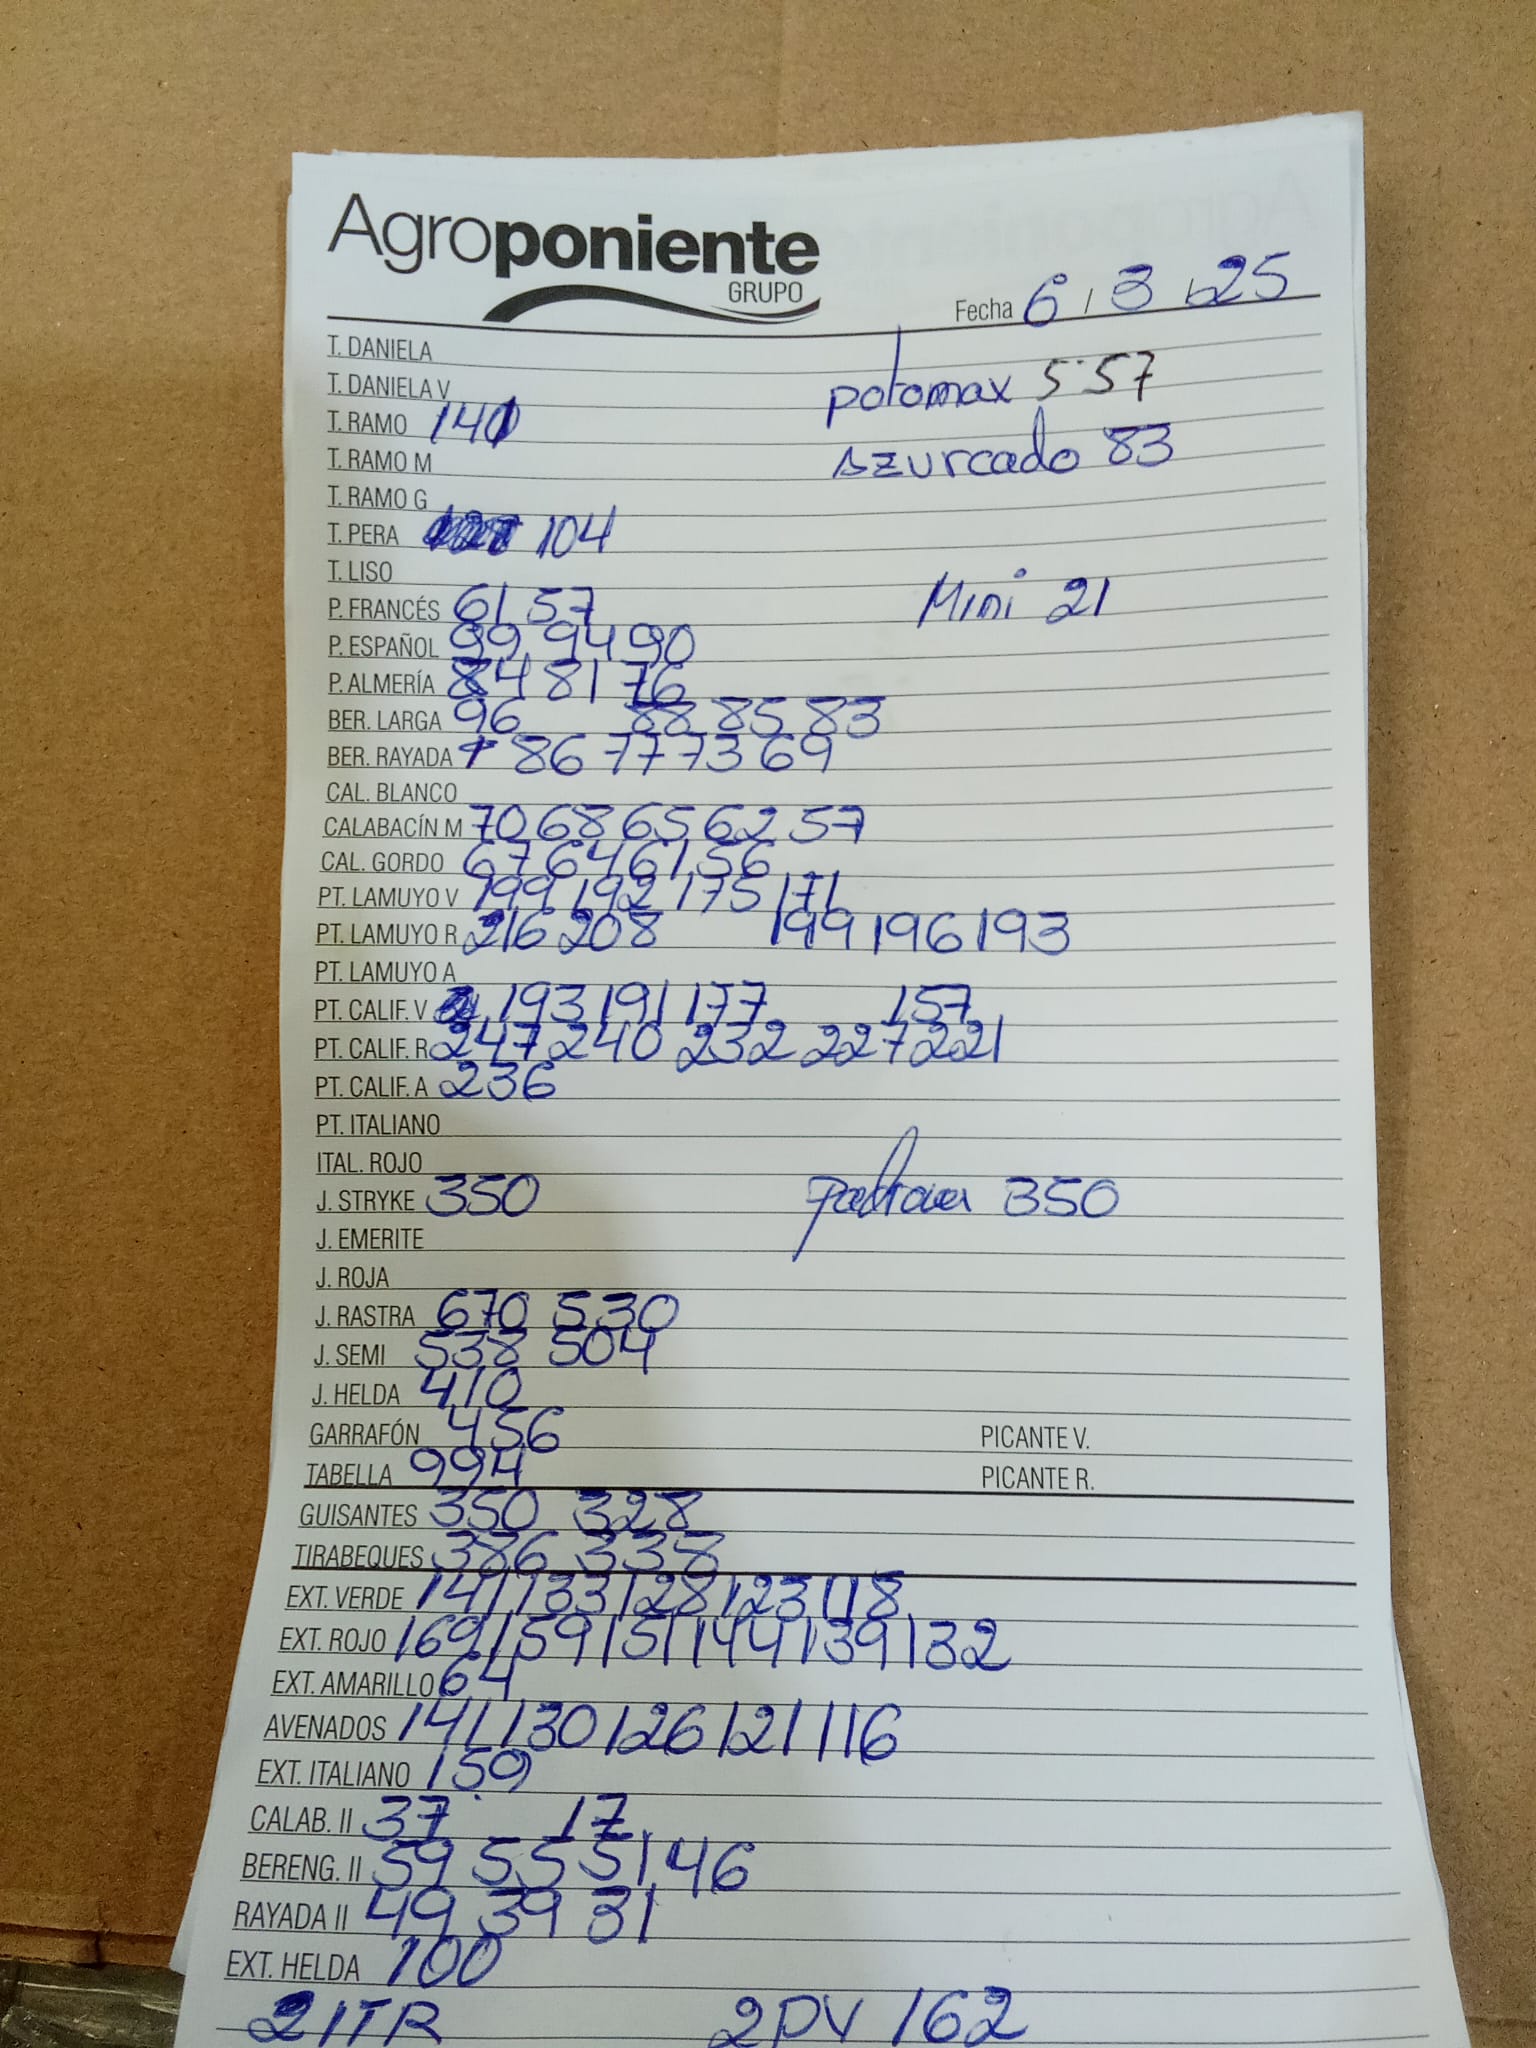 Agroponiente
GRUPO
Fecha 6 / 3 / 25
T. DANIELA
T. DANIELA V potomax 5 57
T. RAMO 140
T. RAMO M Azurcado 83
T. RAMO G
T. PERA 104
T. LISO
P. FRANCÉS 61 57 Mini 21
P. ESPAÑOL 99 94 90
P. ALMERÍA 84 81 76
BER. LARGA 96 88 85 83
BER. RAYADA 86 77 73 69
CAL. BLANCO
CALABACÍN M 70 68 65 62 57
CAL. GORDO 67 64 61 56
PT. LAMUYO V 199 192 175 171
PT. LAMUYO R 216 208 199 196 193
PT. LAMUYO A
PT. CALIF. V 193 191 177 157
PT. CALIF. R 247 240 232 227 221
PT. CALIF. A 236
PT. ITALIANO
ITAL. ROJO
J. STRYKE 350 350
J. EMERITE
J. ROJA
J. RASTRA 670 530
J. SEMI 538 504
J. HELDA 410
GARRAFÓN 456 PICANTE V.
TABELLA 994 PICANTE R.
GUISANTES 350 328
TIRABEQUES 386 338
EXT. VERDE 141 133 128 123 118
EXT. ROJO 169 159 151 144 139 132
EXT. AMARILLO 64
AVENADOS 141 130 126 121 116
EXT. ITALIANO 159
CALAB. II 37 17
BERENG. II 59 55 51 46
RAYADA II 49 39 31
EXT. HELDA 100
2ITR 2PV 162